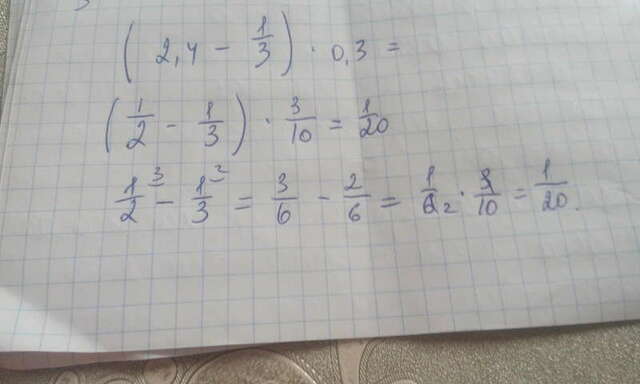 ( 2,4 - 1/3 ) · 0,3 =
( 1/2 - 1/3 ) · 3/10 = 1/20
1/2 ³ - 1/3 ² = 3/6 - 2/6 = 1/6 2 · 3/10 = 1/20.